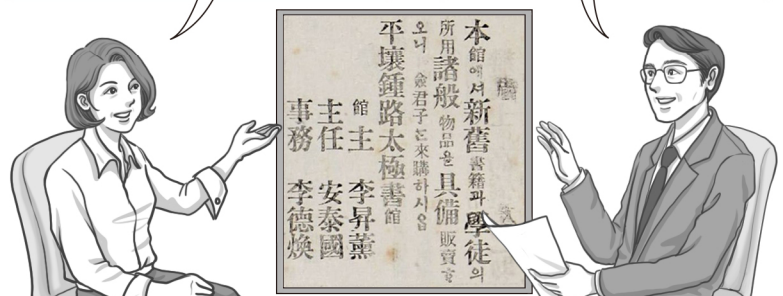 本館에셔新舊書籍과學徒의
所用諸般物品을具備販賣하
오니 僉君子는來購하시옵
平壤鍾路太極書館
館主 李昇薰
主任 安泰國
事務 李德煥